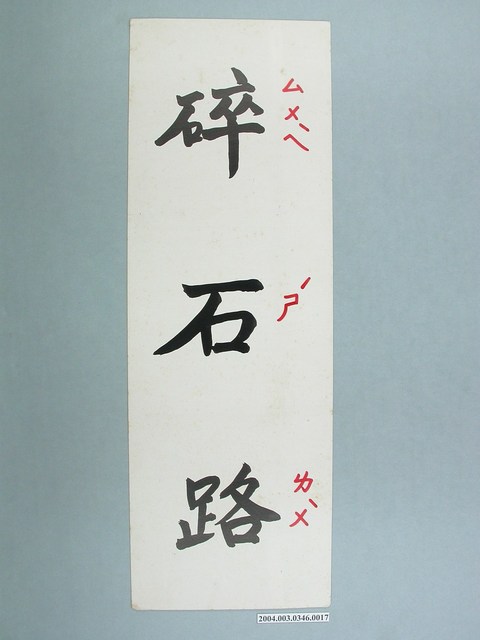 碎 ㄙㄨㄟˋ
石 ㄕˊ
路 ㄌㄨˋ
2004.003.0346.0017